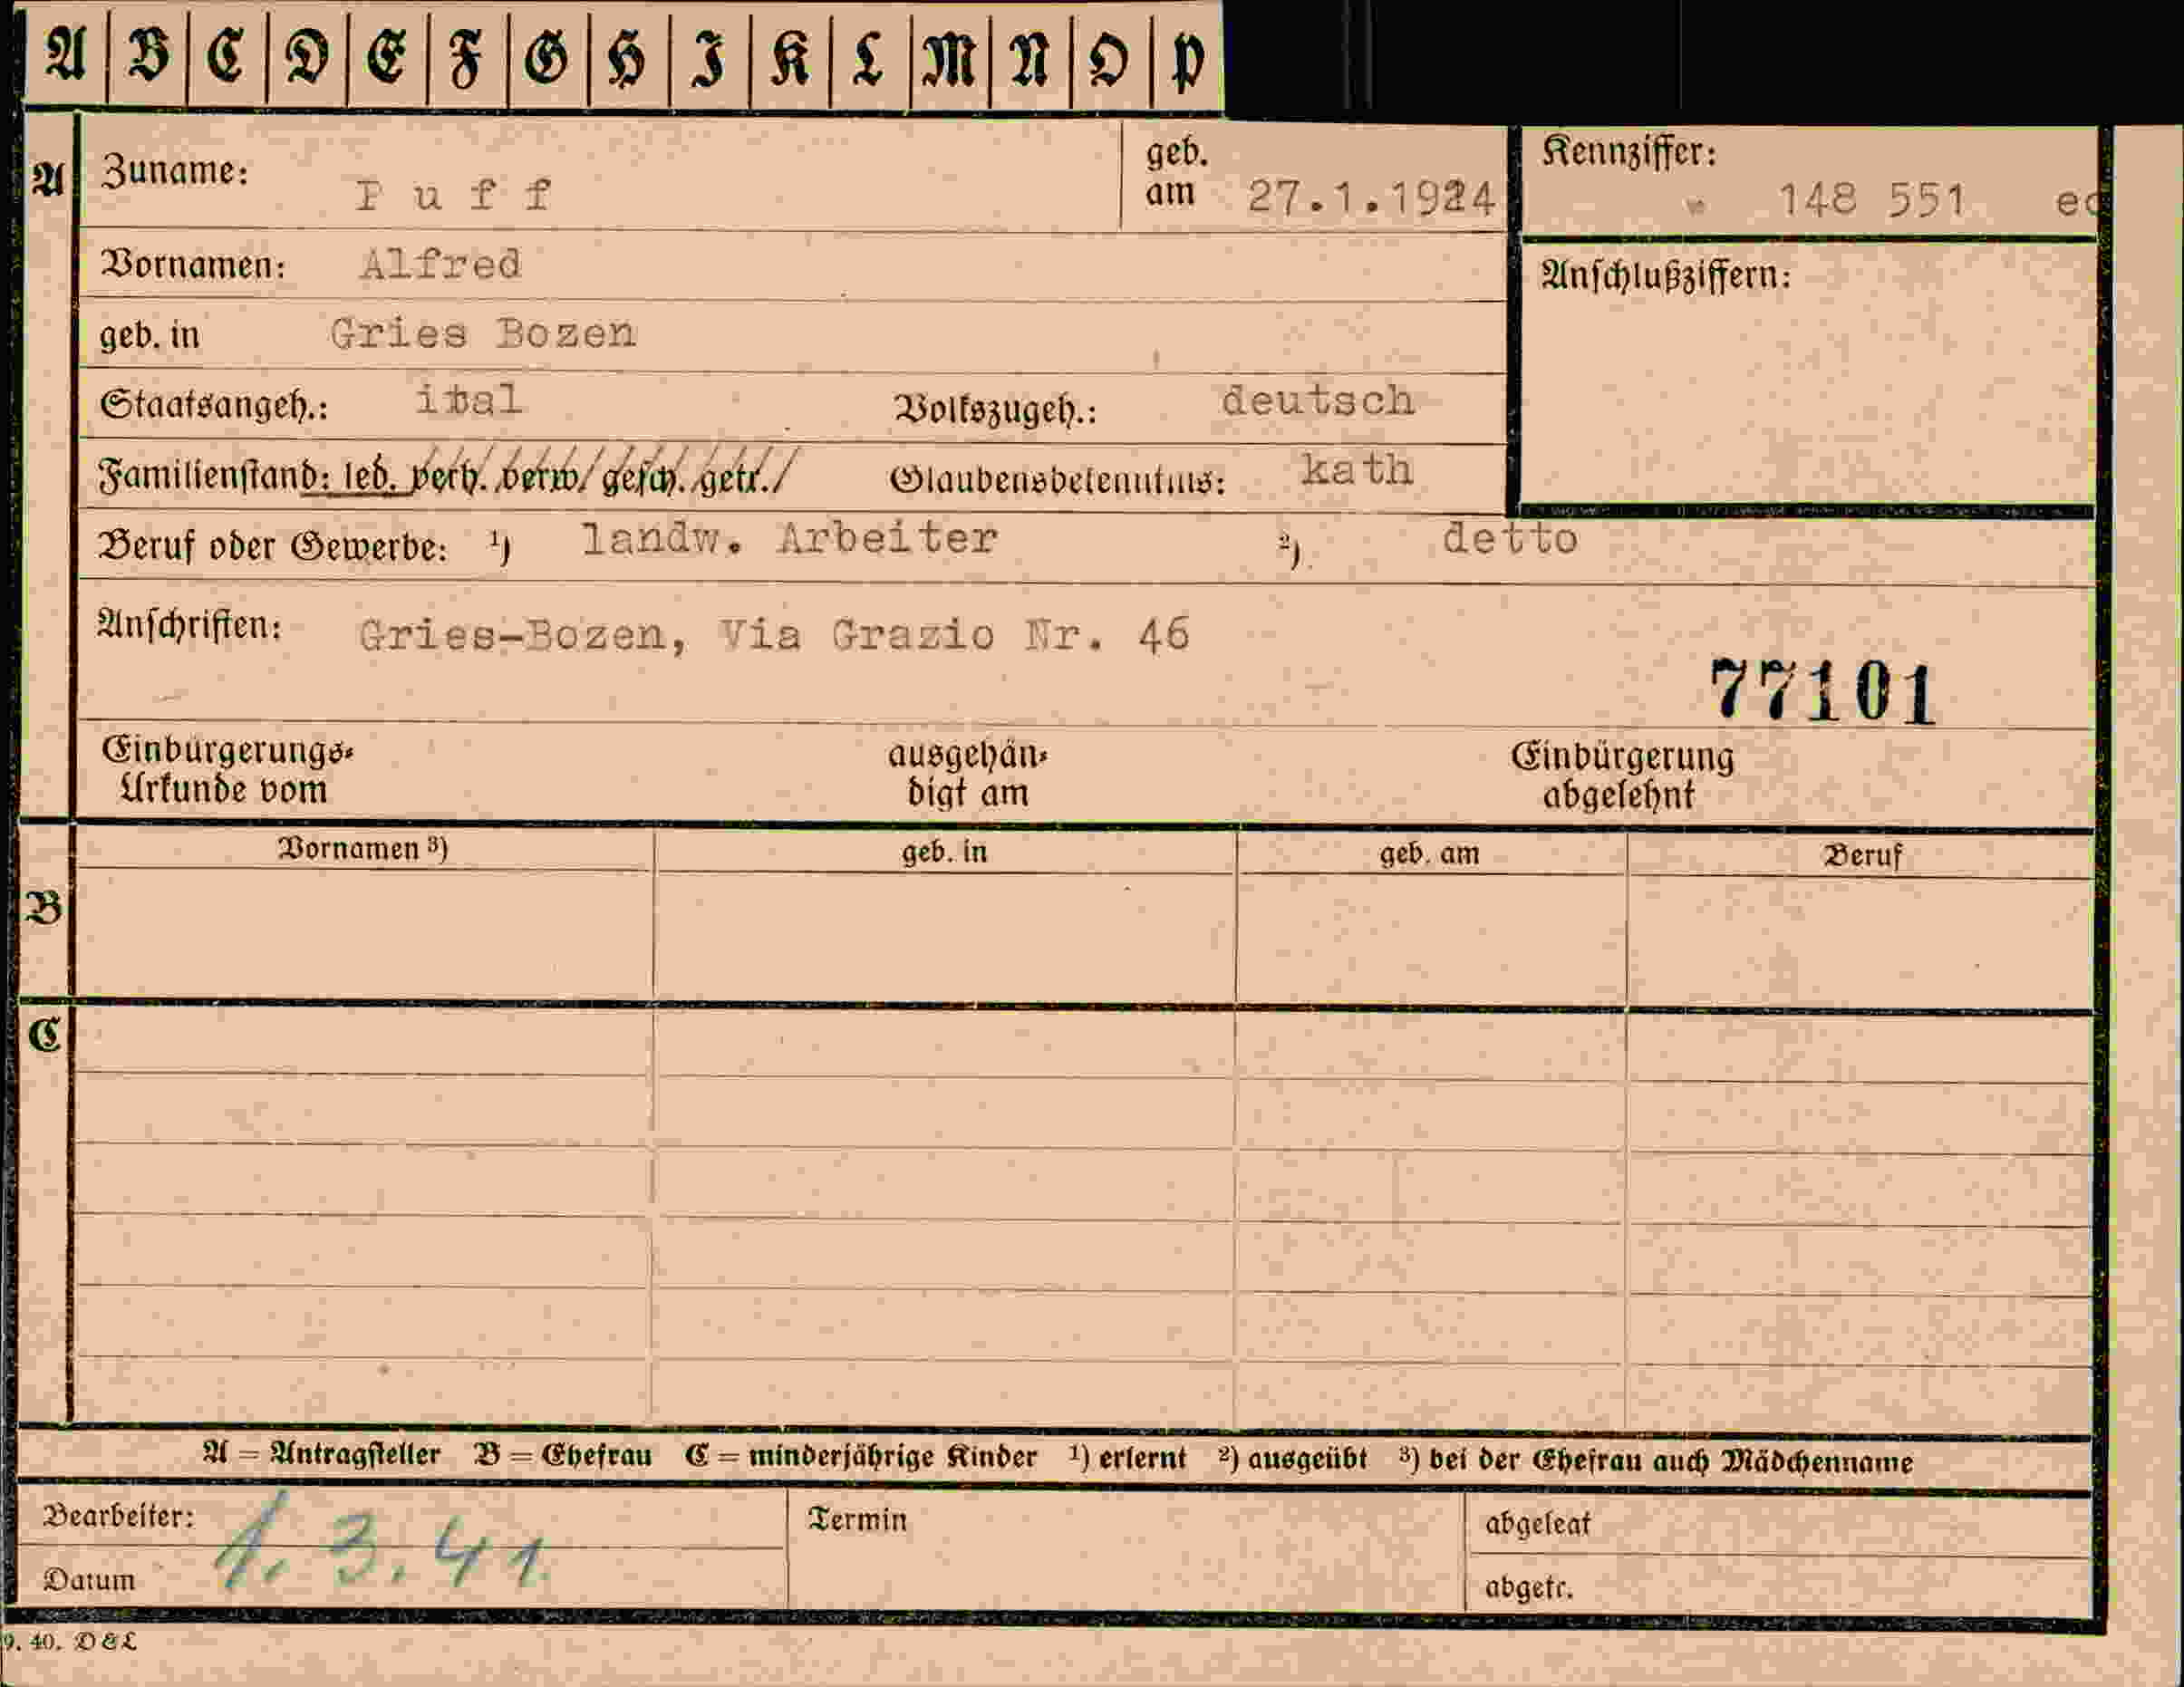 A B C D E F G H I K L M N O P
A Zuname: Puff geb. am 27.1.1924 Kennziffer: 148 551
Vornamen: Alfred Anschlußziffern:
geb. in Gries Bozen
Staatsangeh.: ital Volkszugeh.: deutsch
Familienstand: led. verh. verw. gesch. getr. Glaubensbekenntnis: kath
Beruf oder Gewerbe: ¹) landw. Arbeiter ²) detto
Anschriften: Gries-Bozen, Via Grazio Nr. 46
77101
Einbürgerungs- ausgehän- Einbürgerung
Urkunde vom digt am abgelehnt
Vornamen ³) geb. in geb. am Beruf
B
C
A = Antragsteller B = Ehefrau C = minderjährige Kinder ¹) erlernt ²) ausgeübt ³) bei der Ehefrau auch Mädchenname
Bearbeiter: Termin abgelegt
1.3.41
Datum abgetr.
9. 40. D & L